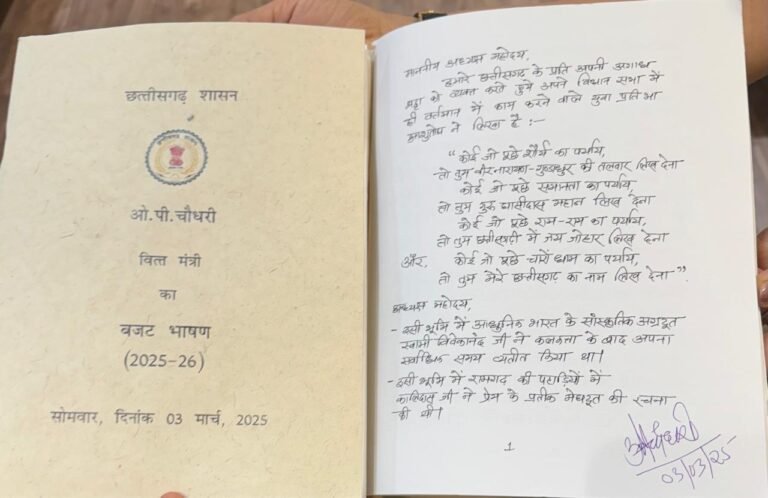 छत्तीसगढ़ शासन
ओ.पी.चौधरी
वित्त मंत्री
का
बजट भाषण
(2025-26)
सोमवार, दिनांक 03 मार्च, 2025
माननीय अध्यक्ष महोदय,
हमारे छत्तीसगढ़ के प्रति अपनी अगाध
श्रद्धा को व्यक्त करते हुये अपने विधान सभा में
ही वर्तमान में काम करने वाले युवा प्रतिभा
ने लिखा है :-
“कोई जो पूछे शौर्य का पर्याय,
तो तुम वीरनारायण-गुण्डाधुर की तलवार लिख देना
कोई जो पूछे समानता का पर्याय,
तो तुम गुरु घासीदास महान लिख देना
कोई जो पूछे राम-राम का पर्याय,
तो तुम छत्तीसगढ़ी में जय जोहार लिख देना
और, कोई जो पूछे चारों धाम का पर्याय,
तो तुम मेरे छत्तीसगढ़ का नाम लिख देना”.
अध्यक्ष महोदय,
- इसी भूमि में आधुनिक भारत के सांस्कृतिक अग्रदूत
स्वामी विवेकानंद जी ने कलकत्ता के बाद अपना
सर्वाधिक समय व्यतीत किया था।
- इसी भूमि में रामगढ़ की पहाड़ियों में
कालिदास जी ने प्रेम के प्रतीक मेघदूत की रचना
की थी।
1
03/03/25